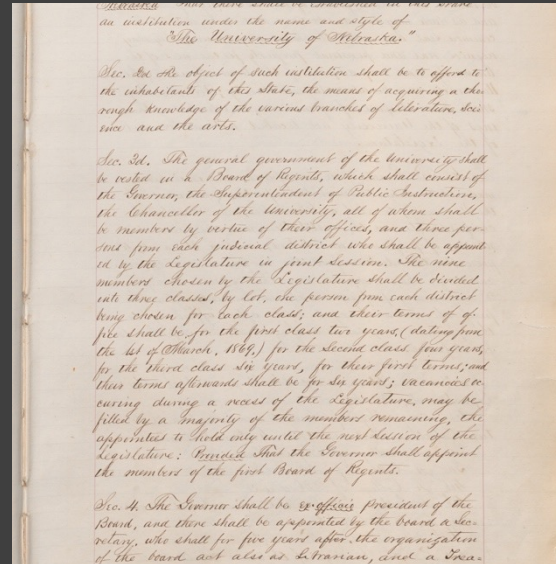 Nebraska That there shall be established in this State
an institution under the name and style of
"The University of Nebraska."
Sec. 2d The object of such institution shall be to afford to
the inhabitants of this State, the means of acquiring a tho
rough knowledge of the various branches of literature, sci
ence and the arts.
Sec. 3d. The general government of the University shall
be vested in a Board of Regents, which shall consist of
the Governor, the Superintendent of Public Instruction,
the Chancellor of the University, all of whom shall
be members by virtue of their offices, and three per-
sons from each judicial district who shall be appoint
ed by the Legislature in joint Session. The nine
members chosen by the Legislature shall be divided
into three classes, by lot, one person from each district
being chosen for each class; and their terms of of-
fice shall be, for the first class two years, (dating from
the 1st of March, 1869,) for the Second class four years,
for the third class six years, for their first terms, and
their terms afterwards shall be for Six years; vacancies oc
curing during a recess of the Legislature, may be
filled by a majority of the members remaining, the
appointees to hold only until the next Session of the
Legislature: Provided That the Governor shall appoint
the members of the first Board of Regents.
Sec. 4. The Governor shall be ex officio president of the
Board, and there shall be appointed by the board a Sec-
retary, who shall for five years after the organization
of the board act also as Librarian, and a Trea-